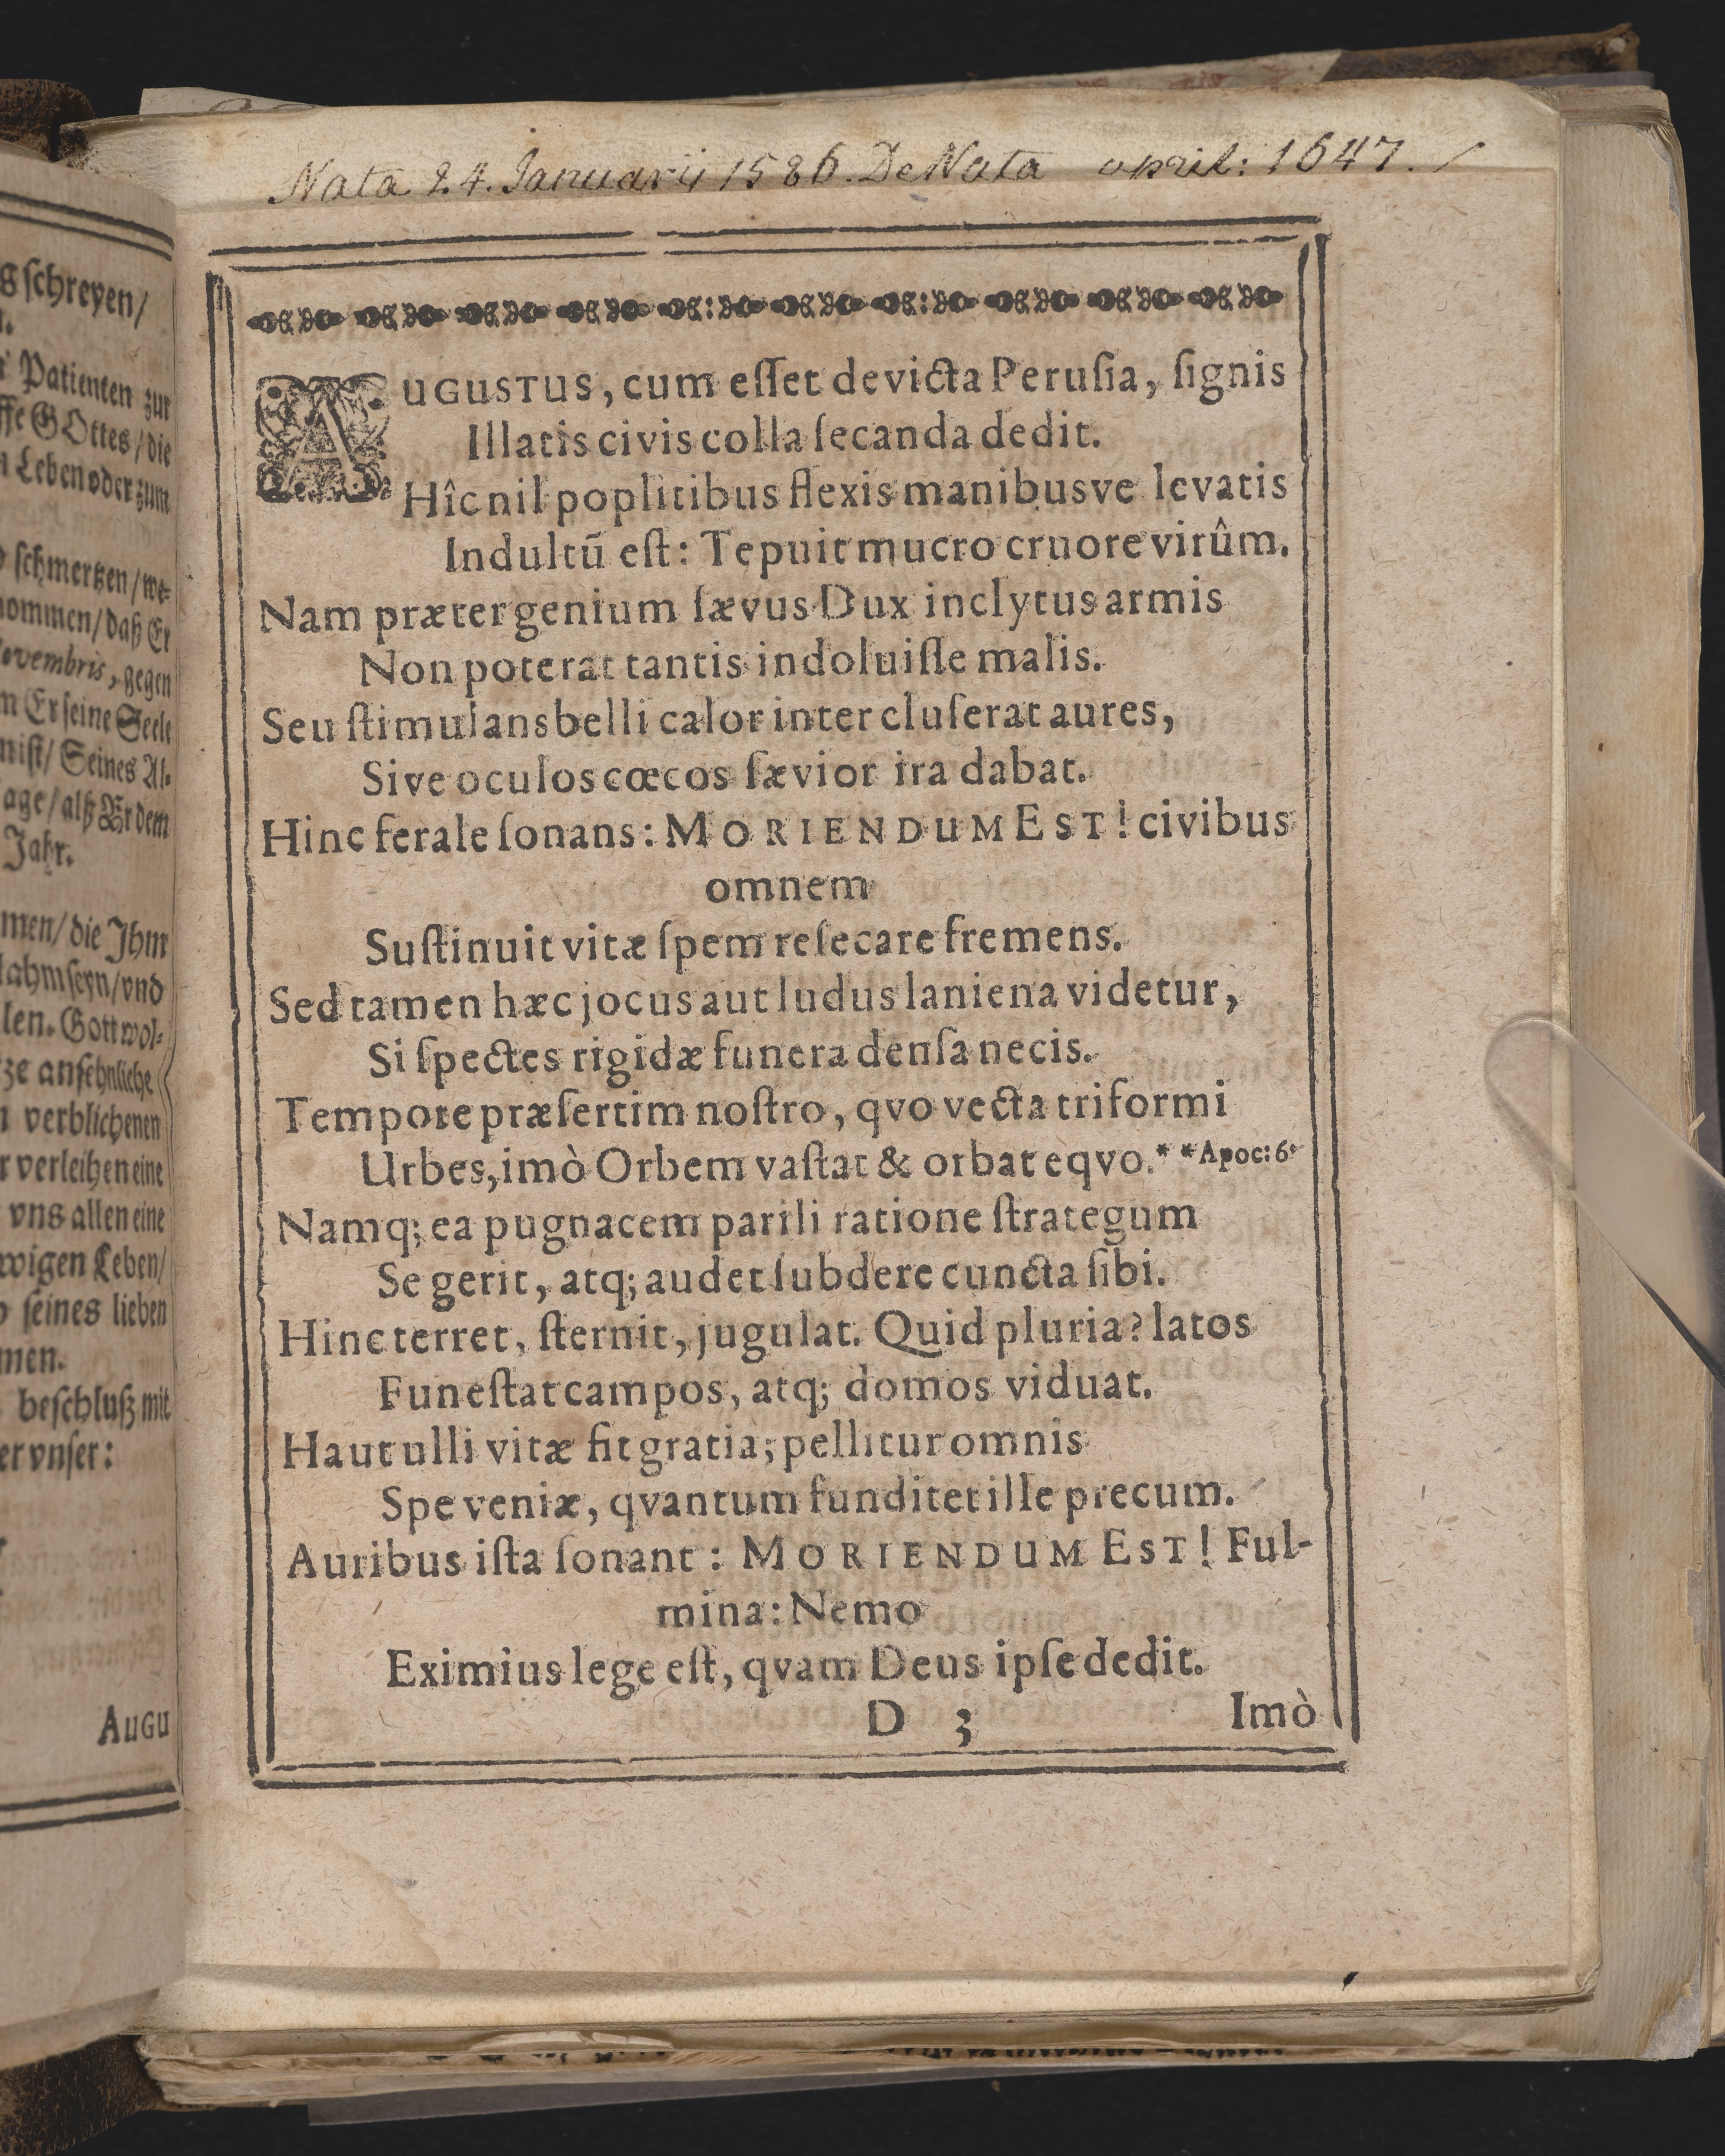 s ſchreyen/
Patienten zur
ſſe GOttes/die
Leben oder zum
ſchmertzen/we-
nommen/daß Er
ovembris, gegen
Er ſeine Seele
niſt/ Seines Al-
age/alß Er dem
Jahr.
men/die Jhm
/vnd
len. Gott wol-
ze anſehnliche
verblichenen
r verleihen eine
vns allen eine
wigen Leben/
ſeines lieben
men.
beſchluß mit
er vnſer:
AuGU
Nata 24. Januarii 1586. DeNata april: 1647. /
AUGUSTUS, cum eſſet devicta Peruſia, ſignis
Illatis civis colla ſecanda dedit.
Hîc nil poplitibus flexis manibusve levatis
Indultũ eſt: Tepuit mucro cruore virûm.
Nam præter genium ſævus Dux inclytus armis
Non poterat tantis indoluiſſe malis.
Seu ſtimulans belli calor inter cluſerat aures,
Sive oculos cœcos ſævior ira dabat.
Hinc ferale ſonans: MORIENDUM EST! civibus
omnem
Suſtinuit vitæ ſpem reſecare fremens.
Sed tamen hæc jocus aut ludus laniena videtur,
Si ſpectes rigidæ funera denſa necis.
Tempore præſertim noſtro, qvo vecta triformi
Urbes, imò Orbem vaſtat & orbat eqvo.* *Apoc: 6.
Namq; ea pugnacem parili ratione ſtrategum
Se gerit, atq; audet ſubdere cuncta ſibi.
Hinc terret, ſternit, jugulat. Quid pluria? latos
Funeſtat campos, atq; domos viduat.
Haut ulli vitæ fit gratia; pellitur omnis
Spe veniæ, qvantum funditet ille precum.
Auribus iſta ſonant: MORIENDUM EST! Ful-
mina: Nemo
Eximius lege eſt, qvam Deus ipſe dedit.
D 3 Imò